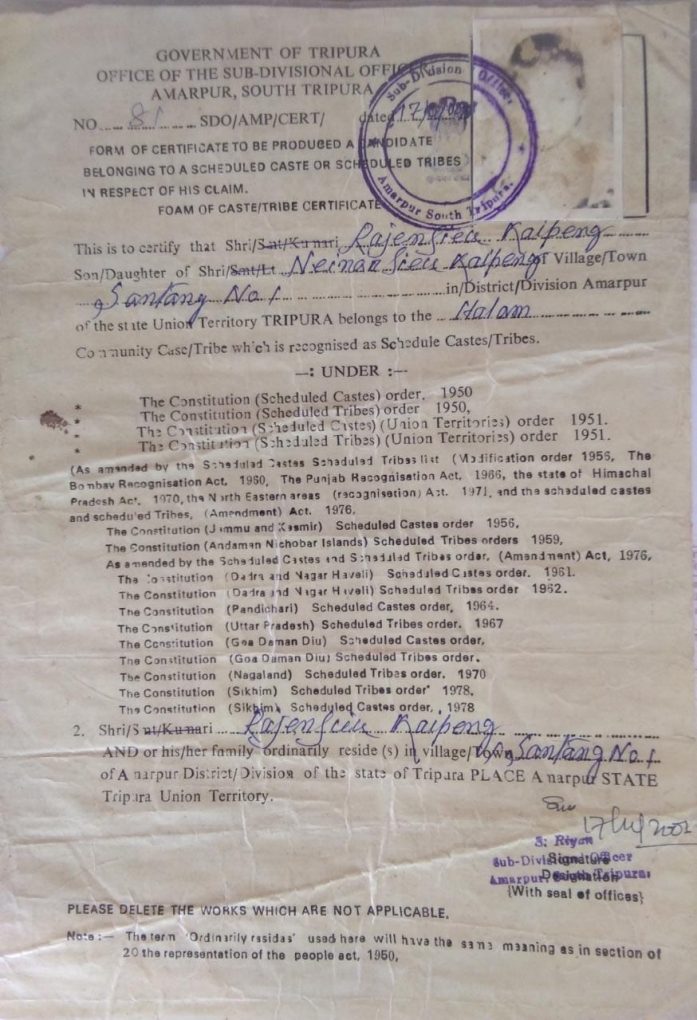 GOVERNMENT OF TRIPURA
OFFICE OF THE SUB-DIVISIONAL OFFICER
AMARPUR, SOUTH TRIPURA
NO. 81 SDO/AMP/CERT/ dated
Sub-Division Officer
Amarpur South Tripura.
FORM OF CERTIFICATE TO BE PRODUCED A CANDIDATE
BELONGING TO A SCHEDULED CASTE OR SCHEDULED TRIBES
IN RESPECT OF HIS CLAIM.
FOAM OF CASTE/TRIBE CERTIFICATE
This is to certify that Shri/Smt/Kumari Kaipeng
Son/Daughter of Shri/Smt/Lt Kaipeng of Village/Town
Santang No.1 in/District/Division Amarpur
of the state Union Territory TRIPURA belongs to the Halam
Community Case/Tribe which is recognised as Schedule Castes/Tribes.
—: UNDER :—
* The Constitution (Scheduled Castes) order. 1950
* The Constitution (Scheduled Tribes) order 1950,
* The Constitution (Scheduled Castes) (Union Territories) order 1951.
* The Constitution (Scheduled Tribes) (Union Territories) order 1951.
(As amended by the Scheduled Castes Scheduled Tribes list (Modification order 1956, The
Bombay Recognisation Act. 1960, The Punjab Recognisation Act, 1966, the state of Himachal
Pradesh Act. 1970, the North Eastern areas (recognisation) Act. 1971, and the scheduled castes
and scheduled Tribes, (Amendment) Act. 1976.
The Constitution (Jammu and Kasmir) Scheduled Castes order 1956,
The Constitution (Andaman Nichobar Islands) Scheduled Tribes orders 1959,
As amended by the Scheduled Castes and Scheduled Tribes order. (Amendment) Act, 1976,
The Constitution (Dadra and Nagar Haveli) Scheduled Castes order. 1961.
The Constitution (Dadra and Nagar Haveli) Scheduled Tribes order 1962.
The Constitution (Pandichari) Scheduled Castes order, 1964.
The Constitution (Uttar Pradesh) Scheduled Tribes order. 1967
The Constitution (Goa Daman Diu) Scheduled Castes order,
The Constitution (Goa Daman Diu) Scheduled Tribes order.
The Constitution (Nagaland) Scheduled Tribes order. 1970
The Constitution (Sikhim) Scheduled Tribes order 1978,
The Constitution (Sikhim) Scheduled Castes order, 1978
2. Shri/Smt/Kumari Kaipeng
AND or his/her family ordinarily reside (s) in village/Town, Santang No.1
of Amarpur District/Division of the state of Tripura PLACE Amarpur STATE
Tripura Union Territory.
2002
S. Riyan
Sub-Divisional Officer
Signature
Amarpur, South Tripura.
Designation
{With seal of offices}
PLEASE DELETE THE WORKS WHICH ARE NOT APPLICABLE.
Note :— The term 'Ordinarily resides' used here will have the same meaning as in section of
20 the representation of the people act, 1950,